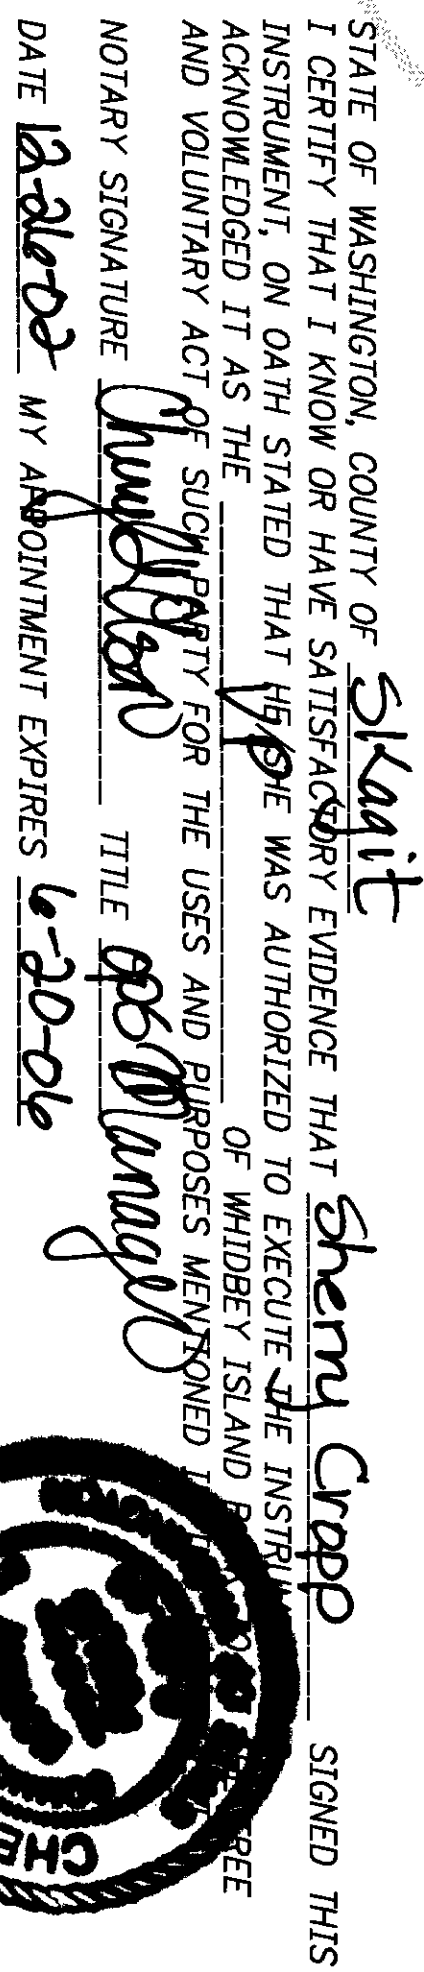 STATE OF WASHINGTON, COUNTY OF Skagit
I CERTIFY THAT I KNOW OR HAVE SATISFACTORY EVIDENCE THAT Sherry Cropp SIGNED THIS
INSTRUMENT, ON OATH STATED THAT HE/SHE WAS AUTHORIZED TO EXECUTE THE
ACKNOWLEDGED IT AS THE VP OF WHIDBEY ISLAND
AND VOLUNTARY ACT OF SUCH PARTY FOR THE USES AND PURPOSES MENTIONED
NOTARY SIGNATURE TITLE Manager
DATE 12-26-02 MY APPOINTMENT EXPIRES 6-20-06